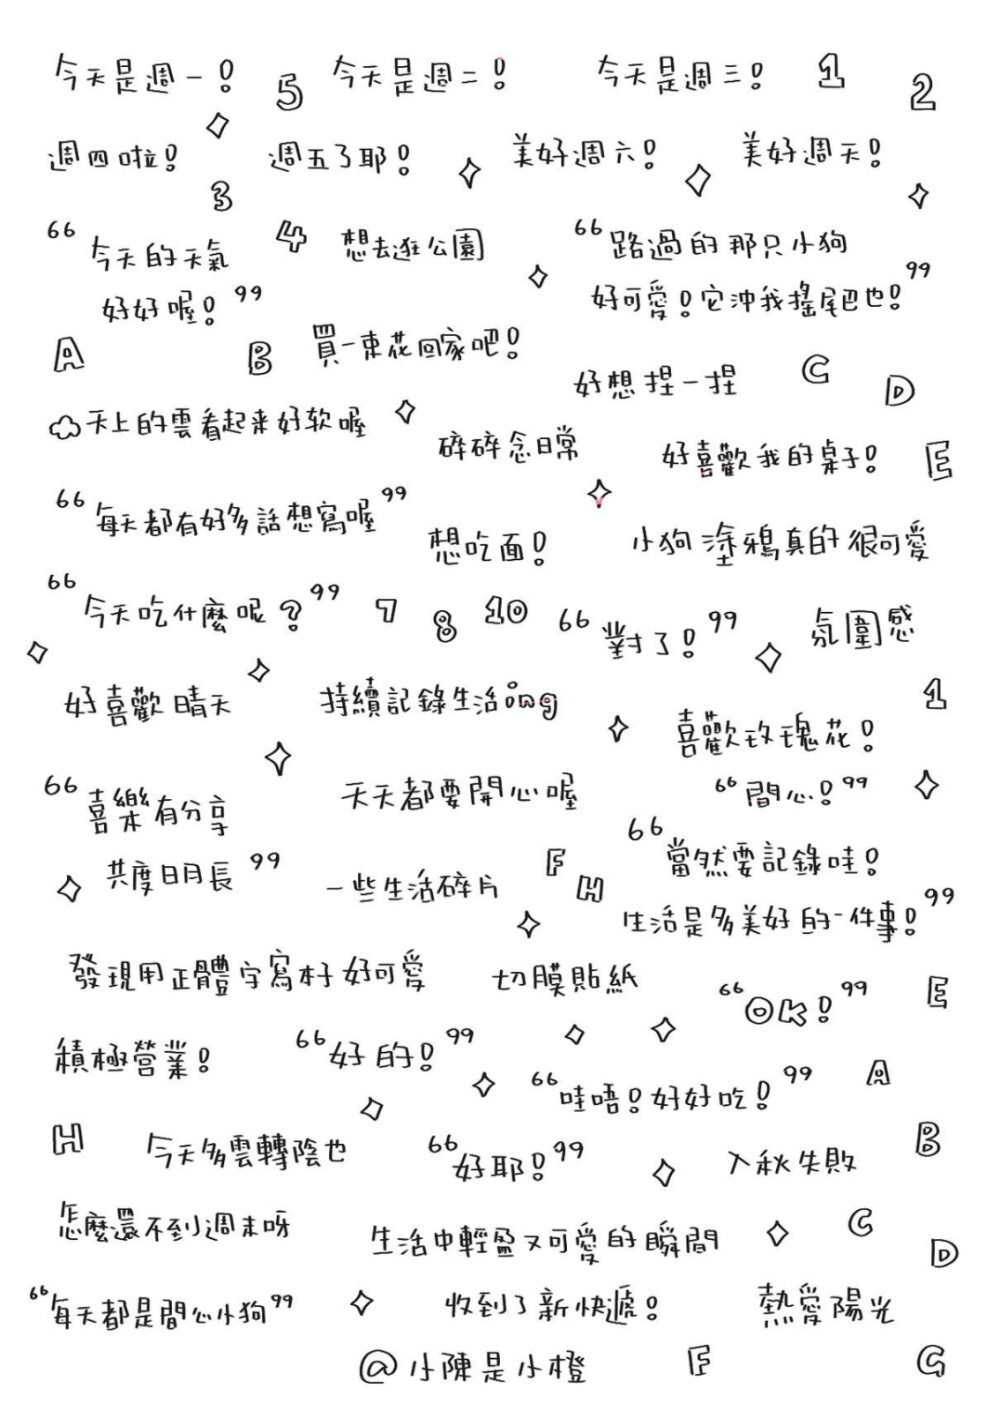 今天是週一！ 5 今天是週二！ 今天是週三！ 1 2
週四啦！ 週五了耶！ 美好週六！ 美好週天！
3
“今天的天氣 4 想去逛公園 “路過的那只小狗
好好喔！” 好可愛！它沖我搖尾巴也！”
A B 買一束花回家吧！
好想捏一捏 C D
天上的雲看起来好软喔
碎碎念日常 好喜歡我的桌子！ E
“每天都有好多話想寫喔”
想吃面！ 小狗塗鴉真的很可愛
“今天吃什麼呢？” 7 8 10 “對了！” 氛圍感
好喜歡晴天 持續記錄生活ing 1
喜歡玫瑰花！
“喜樂有分享 天天都要開心喔 “間心！”
共度日月長” 一些生活碎片 F H “當然要記錄哇！
生活是多美好的一件事！”
發現用正體字寫本子好可愛 切膜貼紙 “OK！” E
積極營業！ “好的！”
“哇唔！好好吃！” A
H 今天多雲轉陰也 “好耶！” 入秋失敗 B
怎麼還不到週末呀 生活中輕盈又可愛的瞬間 C D
“每天都是間心小狗” 收到了新快遞！ 熱愛陽光
@小陳是小橙 F G